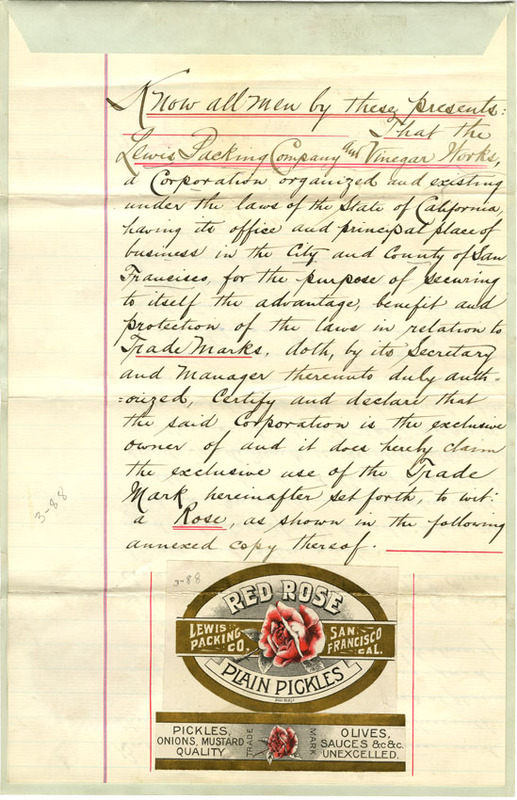 Know all men by these presents:
That the
Lewis Packing Company and Vinegar Works,
a Corporation organized and existing
under the laws of the State of California,
having its office and principal place of
business in the City and County of San
Francisco, for the purpose of securing
to itself the advantage, benefit and
protection of the laws in relation to
Trade Marks, doth, by its Secretary
and Manager thereunto duly auth-
=orized, Certify and declare that
the said Corporation is the exclusive
owner of and it does hereby claim
the exclusive use of the Trade
Mark, hereinafter set forth, to wit:
a Rose, as shown in the following
annexed copy thereof.
3-88
3-88
RED ROSE
LEWIS PACKING CO.
SAN FRANCISCO CAL.
PLAIN PICKLES
PICKLES,
ONIONS, MUSTARD
QUALITY
TRADE
MARK
OLIVES,
SAUCES &c &c.
UNEXCELLED.